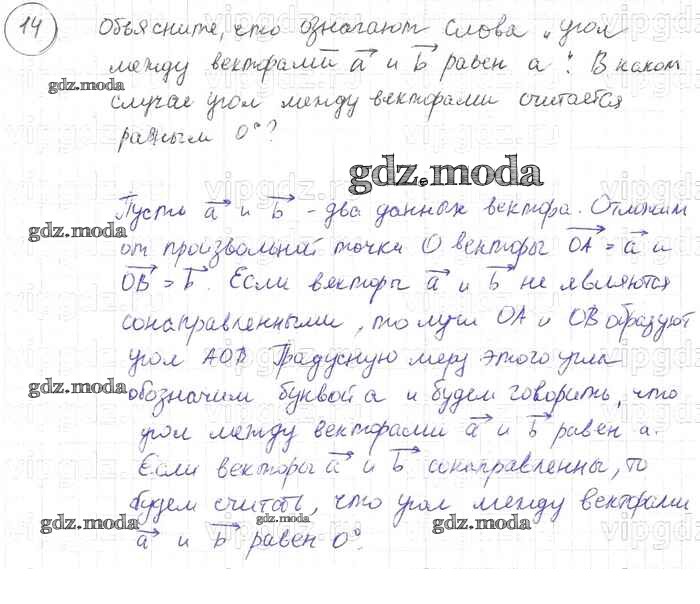 14 Объясните, что означают слова „угол
между векторами a⃗ и b⃗ равен a". В каком
случае угол между векторами считается
равным 0°?
gdz.moda
gdz.moda
Пусть a⃗ и b⃗ - два данных вектора. Отложим
gdz.moda
от произвольной точки O векторы OA⃗ = a⃗ и
OB⃗ = b⃗. Если векторы a⃗ и b⃗ не являются
сонаправленными, то лучи OA и OB образуют
угол AOB. Градусную меру этого угла
gdz.moda
обозначим буквой a и будем говорить, что
угол между векторами a⃗ и b⃗ равен a.
Если векторы a⃗ и b⃗ сонаправленны, то
будем считать, что угол между векторами
gdz.moda
gdz.moda
gdz.moda
a⃗ и b⃗ равен 0°.